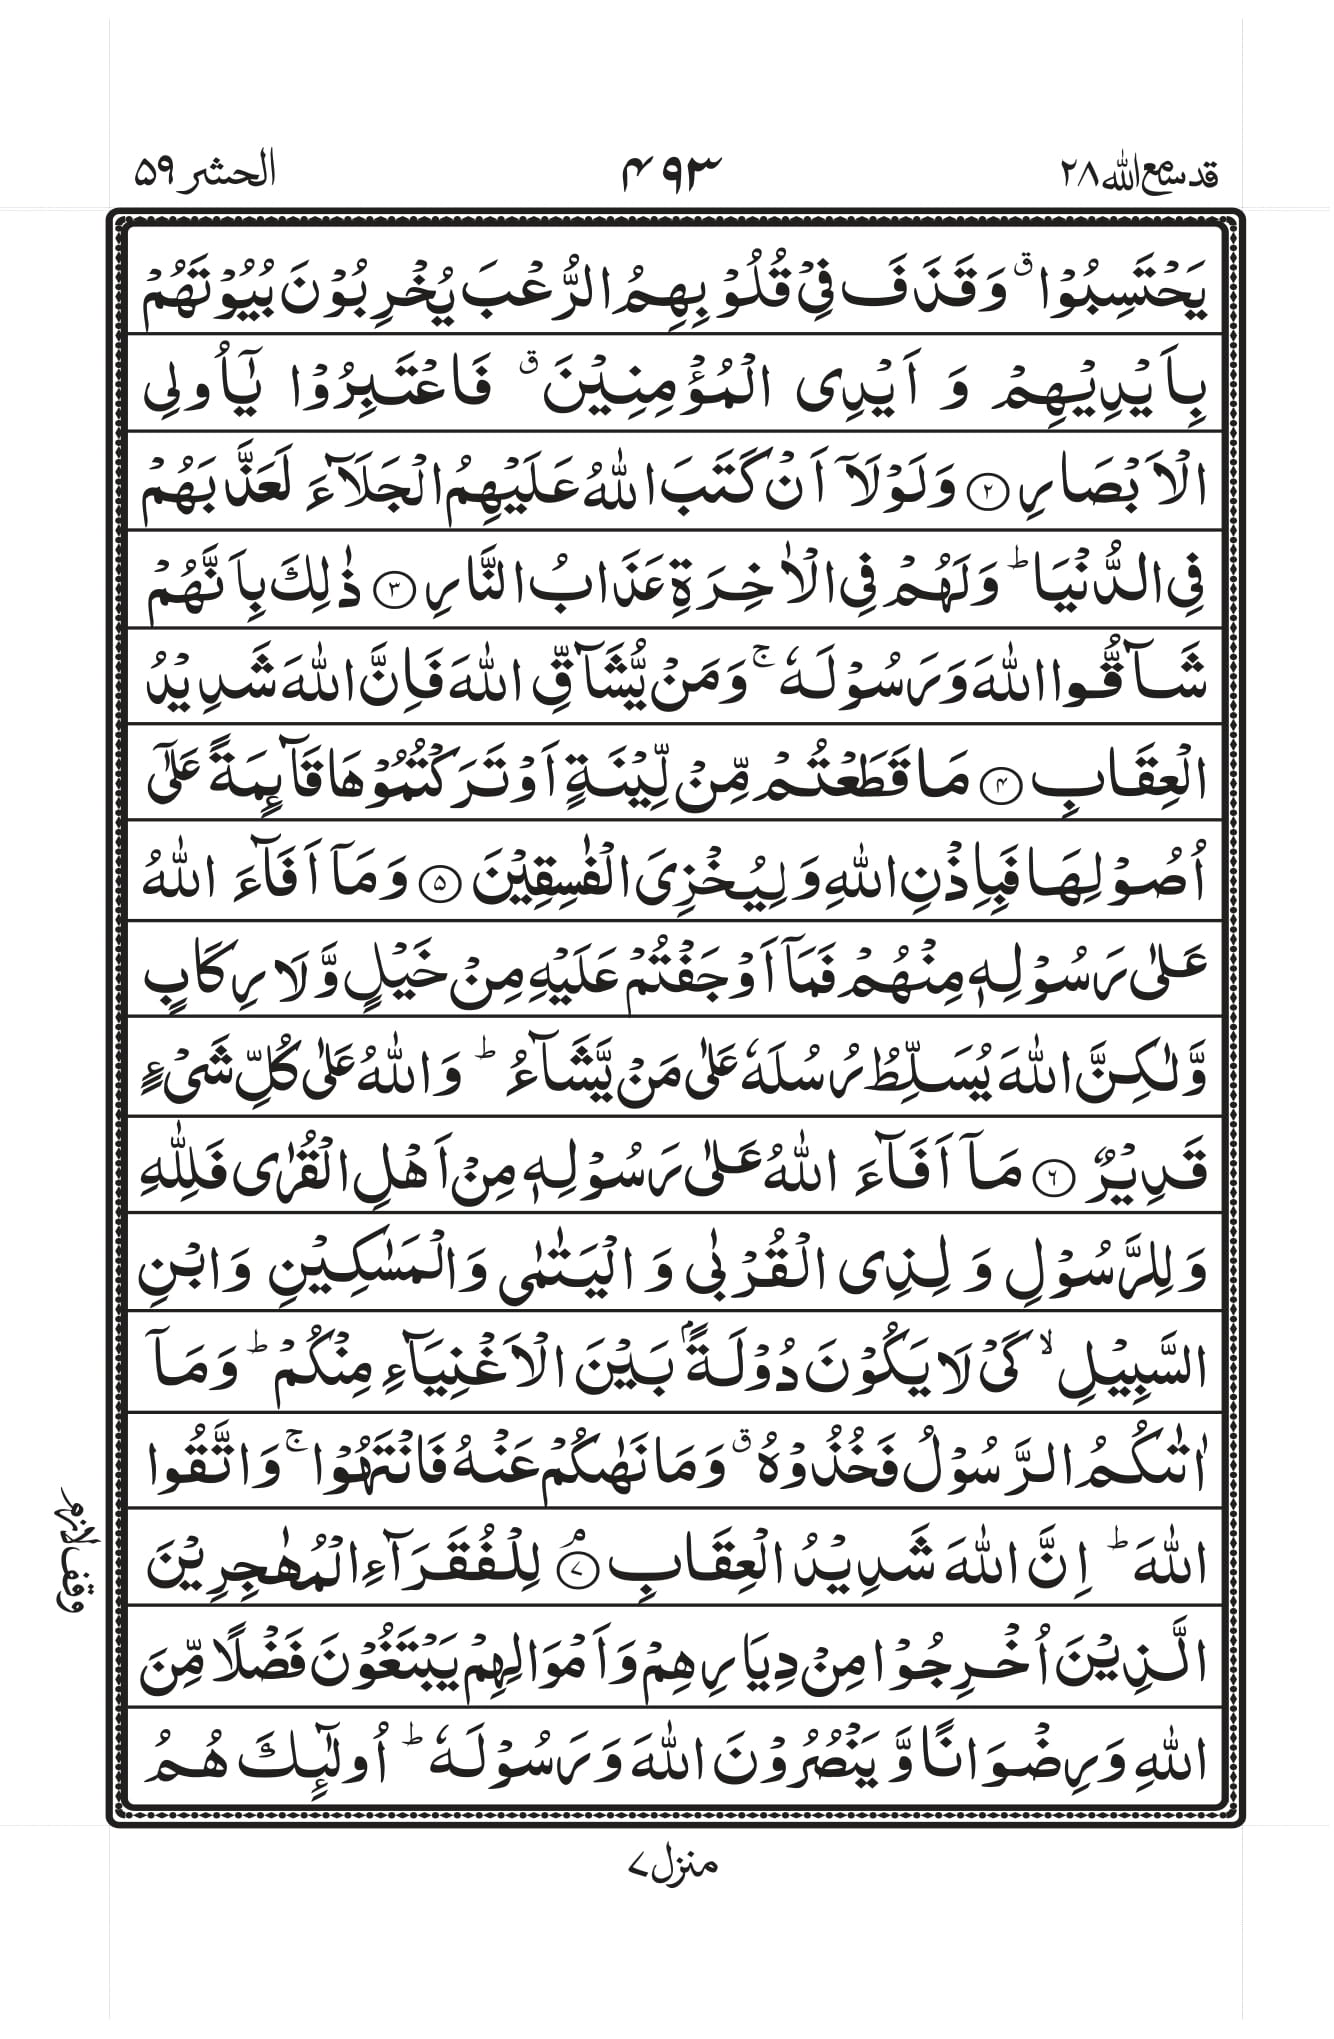 قد سمع الله ٢٨
٤٩٣
الحشر ٥٩
يَحۡتَسِبُوۡا ۛ وَقَذَفَ فِىۡ قُلُوۡبِهِمُ الرُّعۡبَ يُخۡرِبُوۡنَ بُيُوۡتَهُمۡ
بِاَيۡدِيۡهِمۡ وَ اَيۡدِى الۡمُؤۡمِنِيۡنَ ۛ فَاعۡتَبِرُوۡا يٰۤاُولِى
الۡاَبۡصَارِ ﴿۲﴾ وَلَوۡلَاۤ اَنۡ كَتَبَ اللّٰهُ عَلَيۡهِمُ الۡجَلَاۤءَ لَعَذَّبَهُمۡ
فِى الدُّنۡيَا ؕ وَلَهُمۡ فِى الۡاٰخِرَةِ عَذَابُ النَّارِ ﴿۳﴾ ذٰ لِكَ بِاَنَّهُمۡ
شَآقُّوا اللّٰهَ وَرَسُوۡلَهٗ ۚ وَمَنۡ يُّشَآقِّ اللّٰهَ فَاِنَّ اللّٰهَ شَدِيۡدُ
الۡعِقَابِ ﴿۴﴾ مَا قَطَعۡتُمۡ مِّنۡ لِّيۡنَةٍ اَوۡ تَرَكۡتُمُوۡهَا قَآٮِٕمَةً عَلٰٓى
اُصُوۡلِهَا فَبِاِذۡنِ اللّٰهِ وَلِيُخۡزِىَ الۡفٰسِقِيۡنَ ﴿۵﴾ وَمَاۤ اَفَآءَ اللّٰهُ
عَلٰى رَسُوۡلِهٖ مِنۡهُمۡ فَمَاۤ اَوۡجَفۡتُمۡ عَلَيۡهِ مِنۡ خَيۡلٍ وَّلَا رِكَابٍ
وَّلٰكِنَّ اللّٰهَ يُسَلِّطُ رُسُلَهٗ عَلٰى مَنۡ يَّشَآءُ ؕ وَاللّٰهُ عَلٰى كُلِّ شَىۡءٍ
قَدِيۡرٌ ﴿۶﴾ مَاۤ اَفَآءَ اللّٰهُ عَلٰى رَسُوۡلِهٖ مِنۡ اَهۡلِ الۡقُرٰى فَلِلّٰهِ
وَلِلرَّسُوۡلِ وَ لِذِى الۡقُرۡبٰى وَ الۡيَتٰمٰى وَالۡمَسٰكِيۡنِ وَابۡنِ
السَّبِيۡلِ ۙ كَىۡ لَا يَكُوۡنَ دُوۡلَةًۢ بَيۡنَ الۡاَغۡنِيَآءِ مِنۡكُمۡ ؕ وَمَاۤ
اٰتٰٮكُمُ الرَّسُوۡلُ فَخُذُوۡهُ ۛ وَمَا نَهٰٮكُمۡ عَنۡهُ فَانۡتَهُوۡا ۚ وَاتَّقُوا
اللّٰهَ ؕ اِنَّ اللّٰهَ شَدِيۡدُ الۡعِقَابِ ۘ ﴿۷﴾ لِلۡفُقَرَآءِ الۡمُهٰجِرِيۡنَ
وقف لازم
الَّذِيۡنَ اُخۡرِجُوۡا مِنۡ دِيَارِهِمۡ وَاَمۡوَالِهِمۡ يَبۡتَغُوۡنَ فَضۡلًا مِّنَ
اللّٰهِ وَرِضۡوَانًا وَّيَنۡصُرُوۡنَ اللّٰهَ وَرَسُوۡلَهٗ ؕ اُولٰٓٮِٕكَ هُمُ
منزل ٧